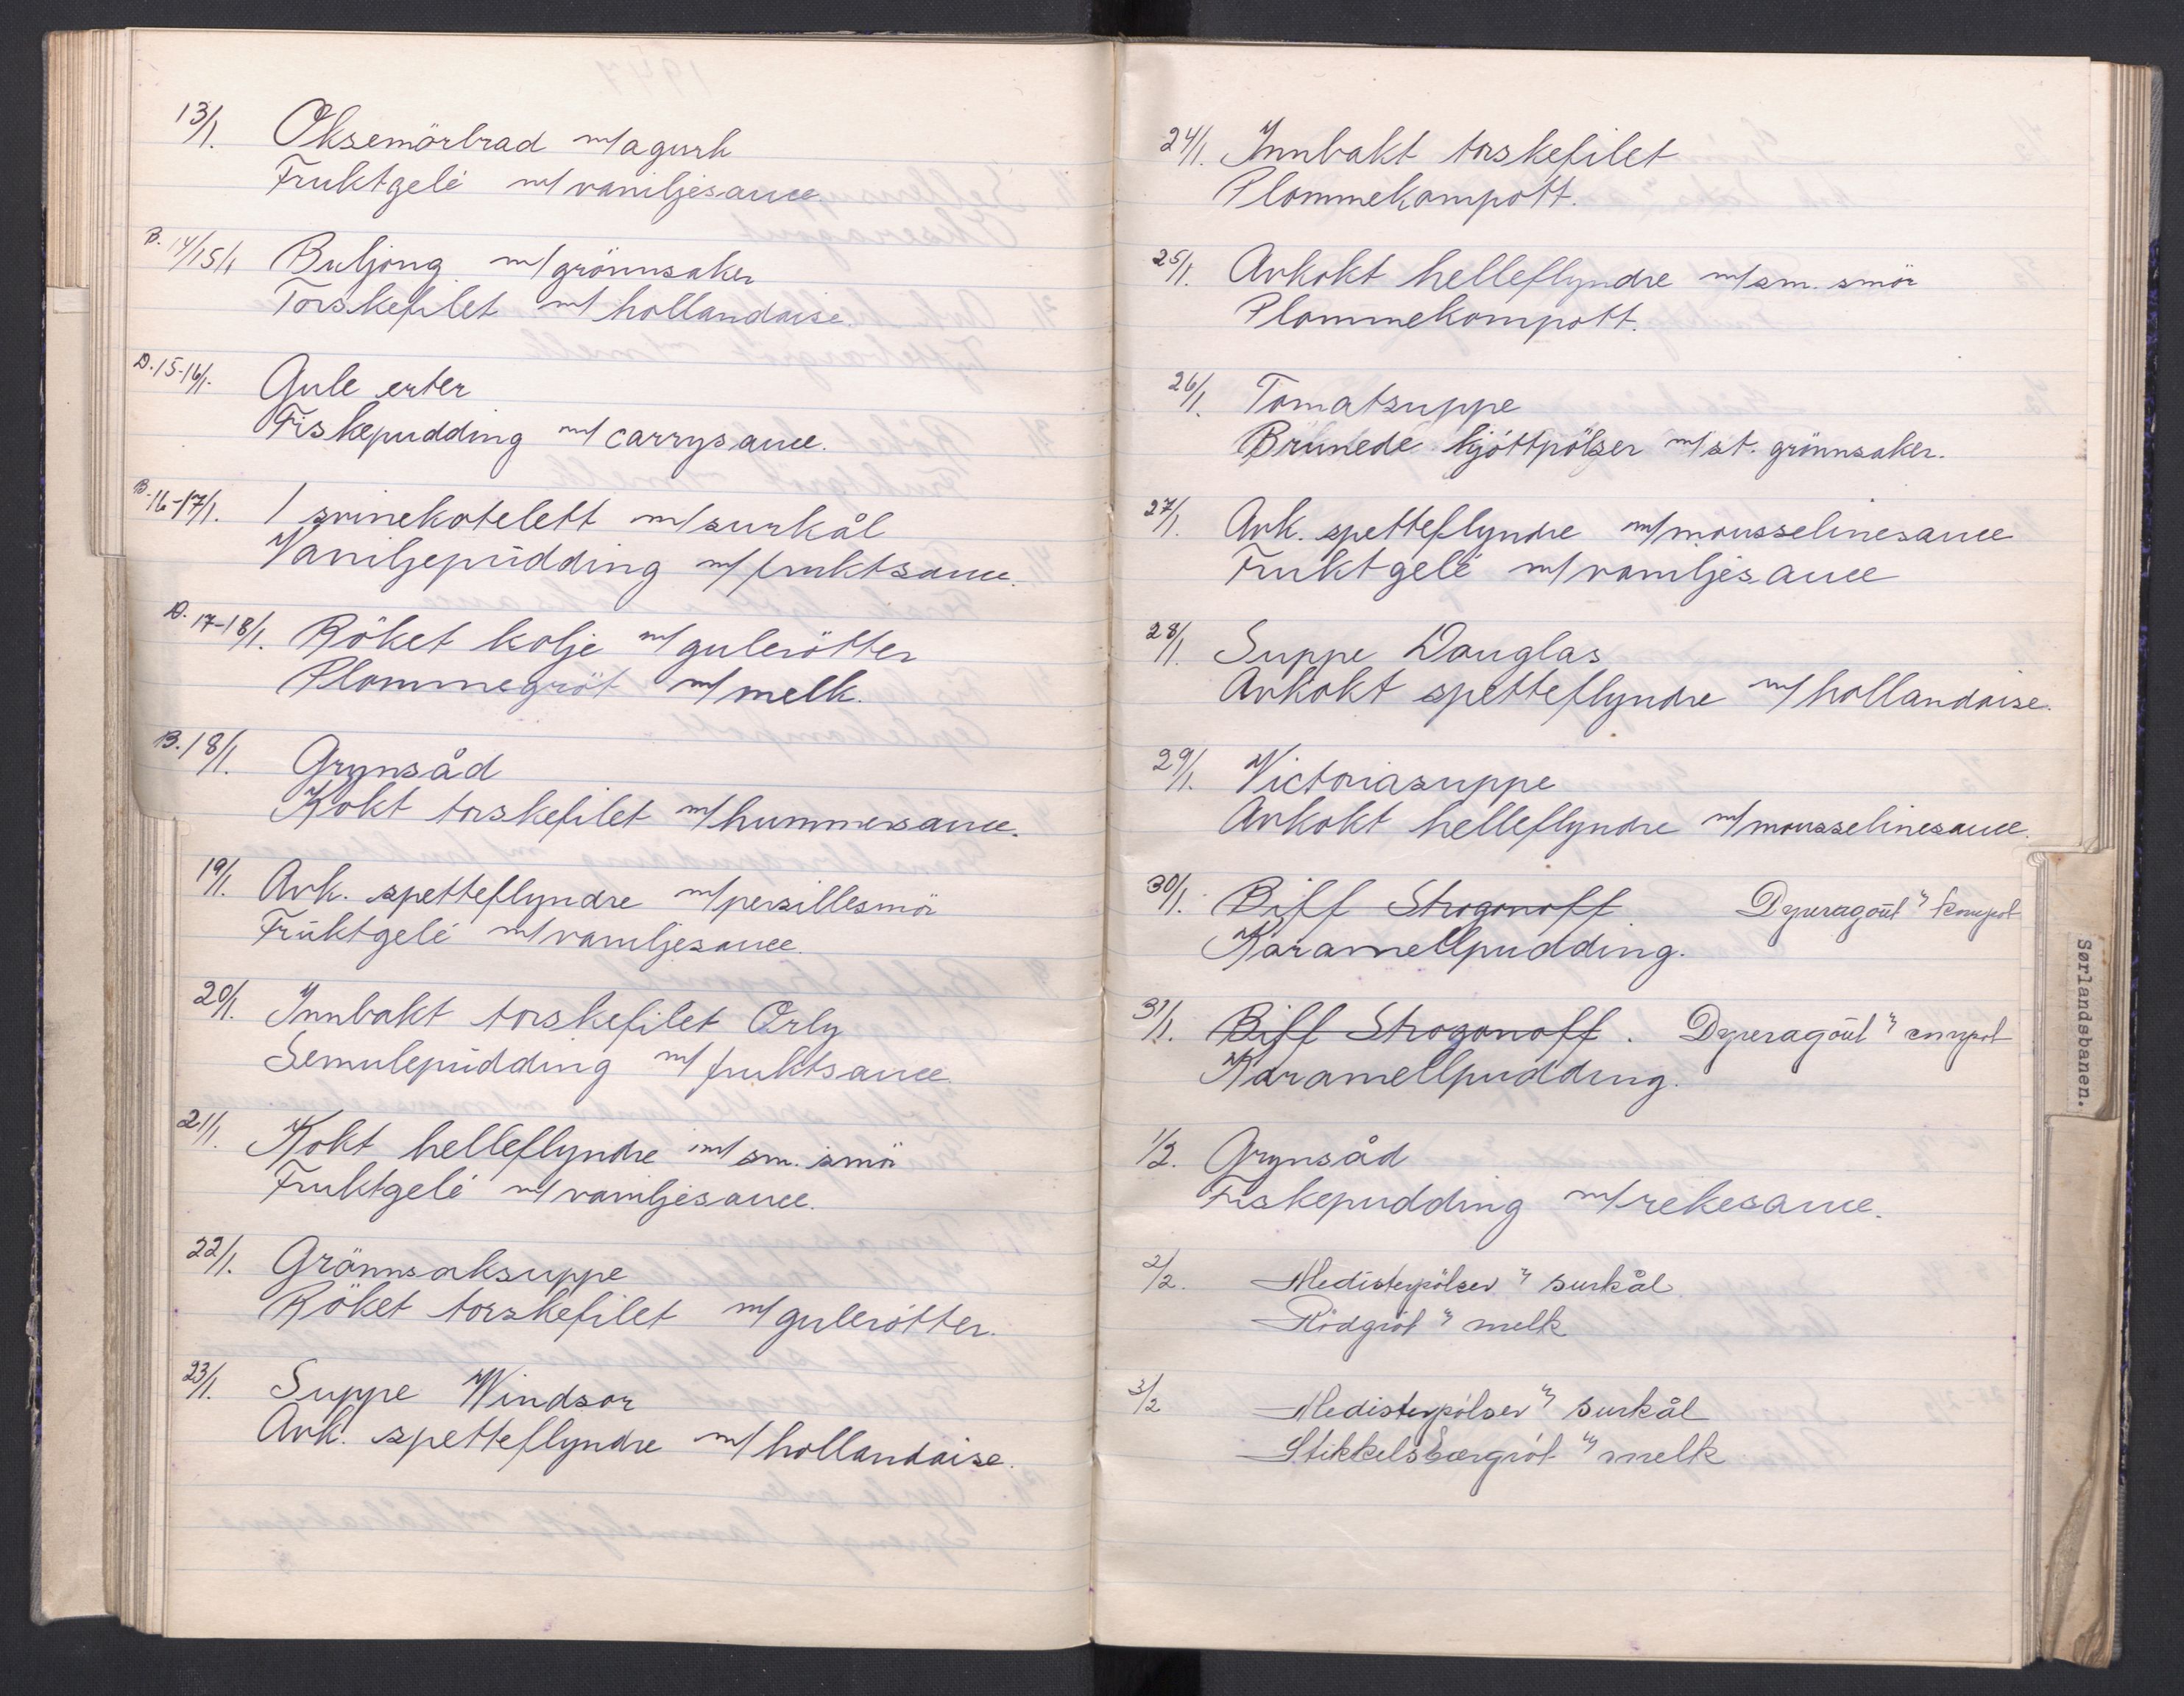 13/1. Oksemörbrad m/agurk
Fruktgelé m/vaniljesauce.
B. 14/15/1 Buljong m/grönnsaker
Torskefilet m/hollandaise.
D. 15-16/1. Gule erter
Fiskepudding m/carrysauce.
B. 16-17/1. 1 svinekotelett m/surkål
Vaniljepudding m/fruktsauce.
D. 17-18/1. Röket kolje m/gulerötter
Plommegröt m/melk.
B. 18/1. Grynsåd
Kokt torskefilet m/hummersauce.
19/1. Avk. spetteflyndre m/persillesmör
Fruktgelé m/vaniljesauce.
20/1. Innbakt torskefilet Orly
Semulepudding m/fruktsauce.
21/1. Kokt helleflyndre m/sm. smör
Fruktgelé m/vaniljesauce.
22/1. Grönnsaksuppe
Röket torskefilet m/gulerötter.
23/1. Suppe Windsor
Avk. spetteflyndre m/hollandaise.
24/1. Innbakt torskefilet
Plommekompott.
25/1. Avkokt helleflyndre m/sm. smör
Plommekompott.
26/1. Tomatsuppe
Brunede kjöttpölser m/st. grönnsaker.
27/1. Avk. spetteflyndre m/mousselinesauce
Fruktgelé m/vaniljesauce
28/1. Suppe Douglas
Avkokt spetteflyndre m/hollandaise.
29/1. Victoriasuppe
Avkokt helleflyndre m/mousselinesauce.
30/1. Biff Strogonoff. Dyreragout m/ kompot
Karamellpudding.
31/1. Biff Strogonoff. Dyreragout m/ compot
Karamellpudding.
1/2. Grynsåd
Fiskepudding m/rekesauce.
2/2. Medisterpölser m/ surkål
Rödgröt m/ melk
3/2 Medisterpölser m/ surkål
Stikkelsbærgröt m/ melk
Sørlandsbanen.